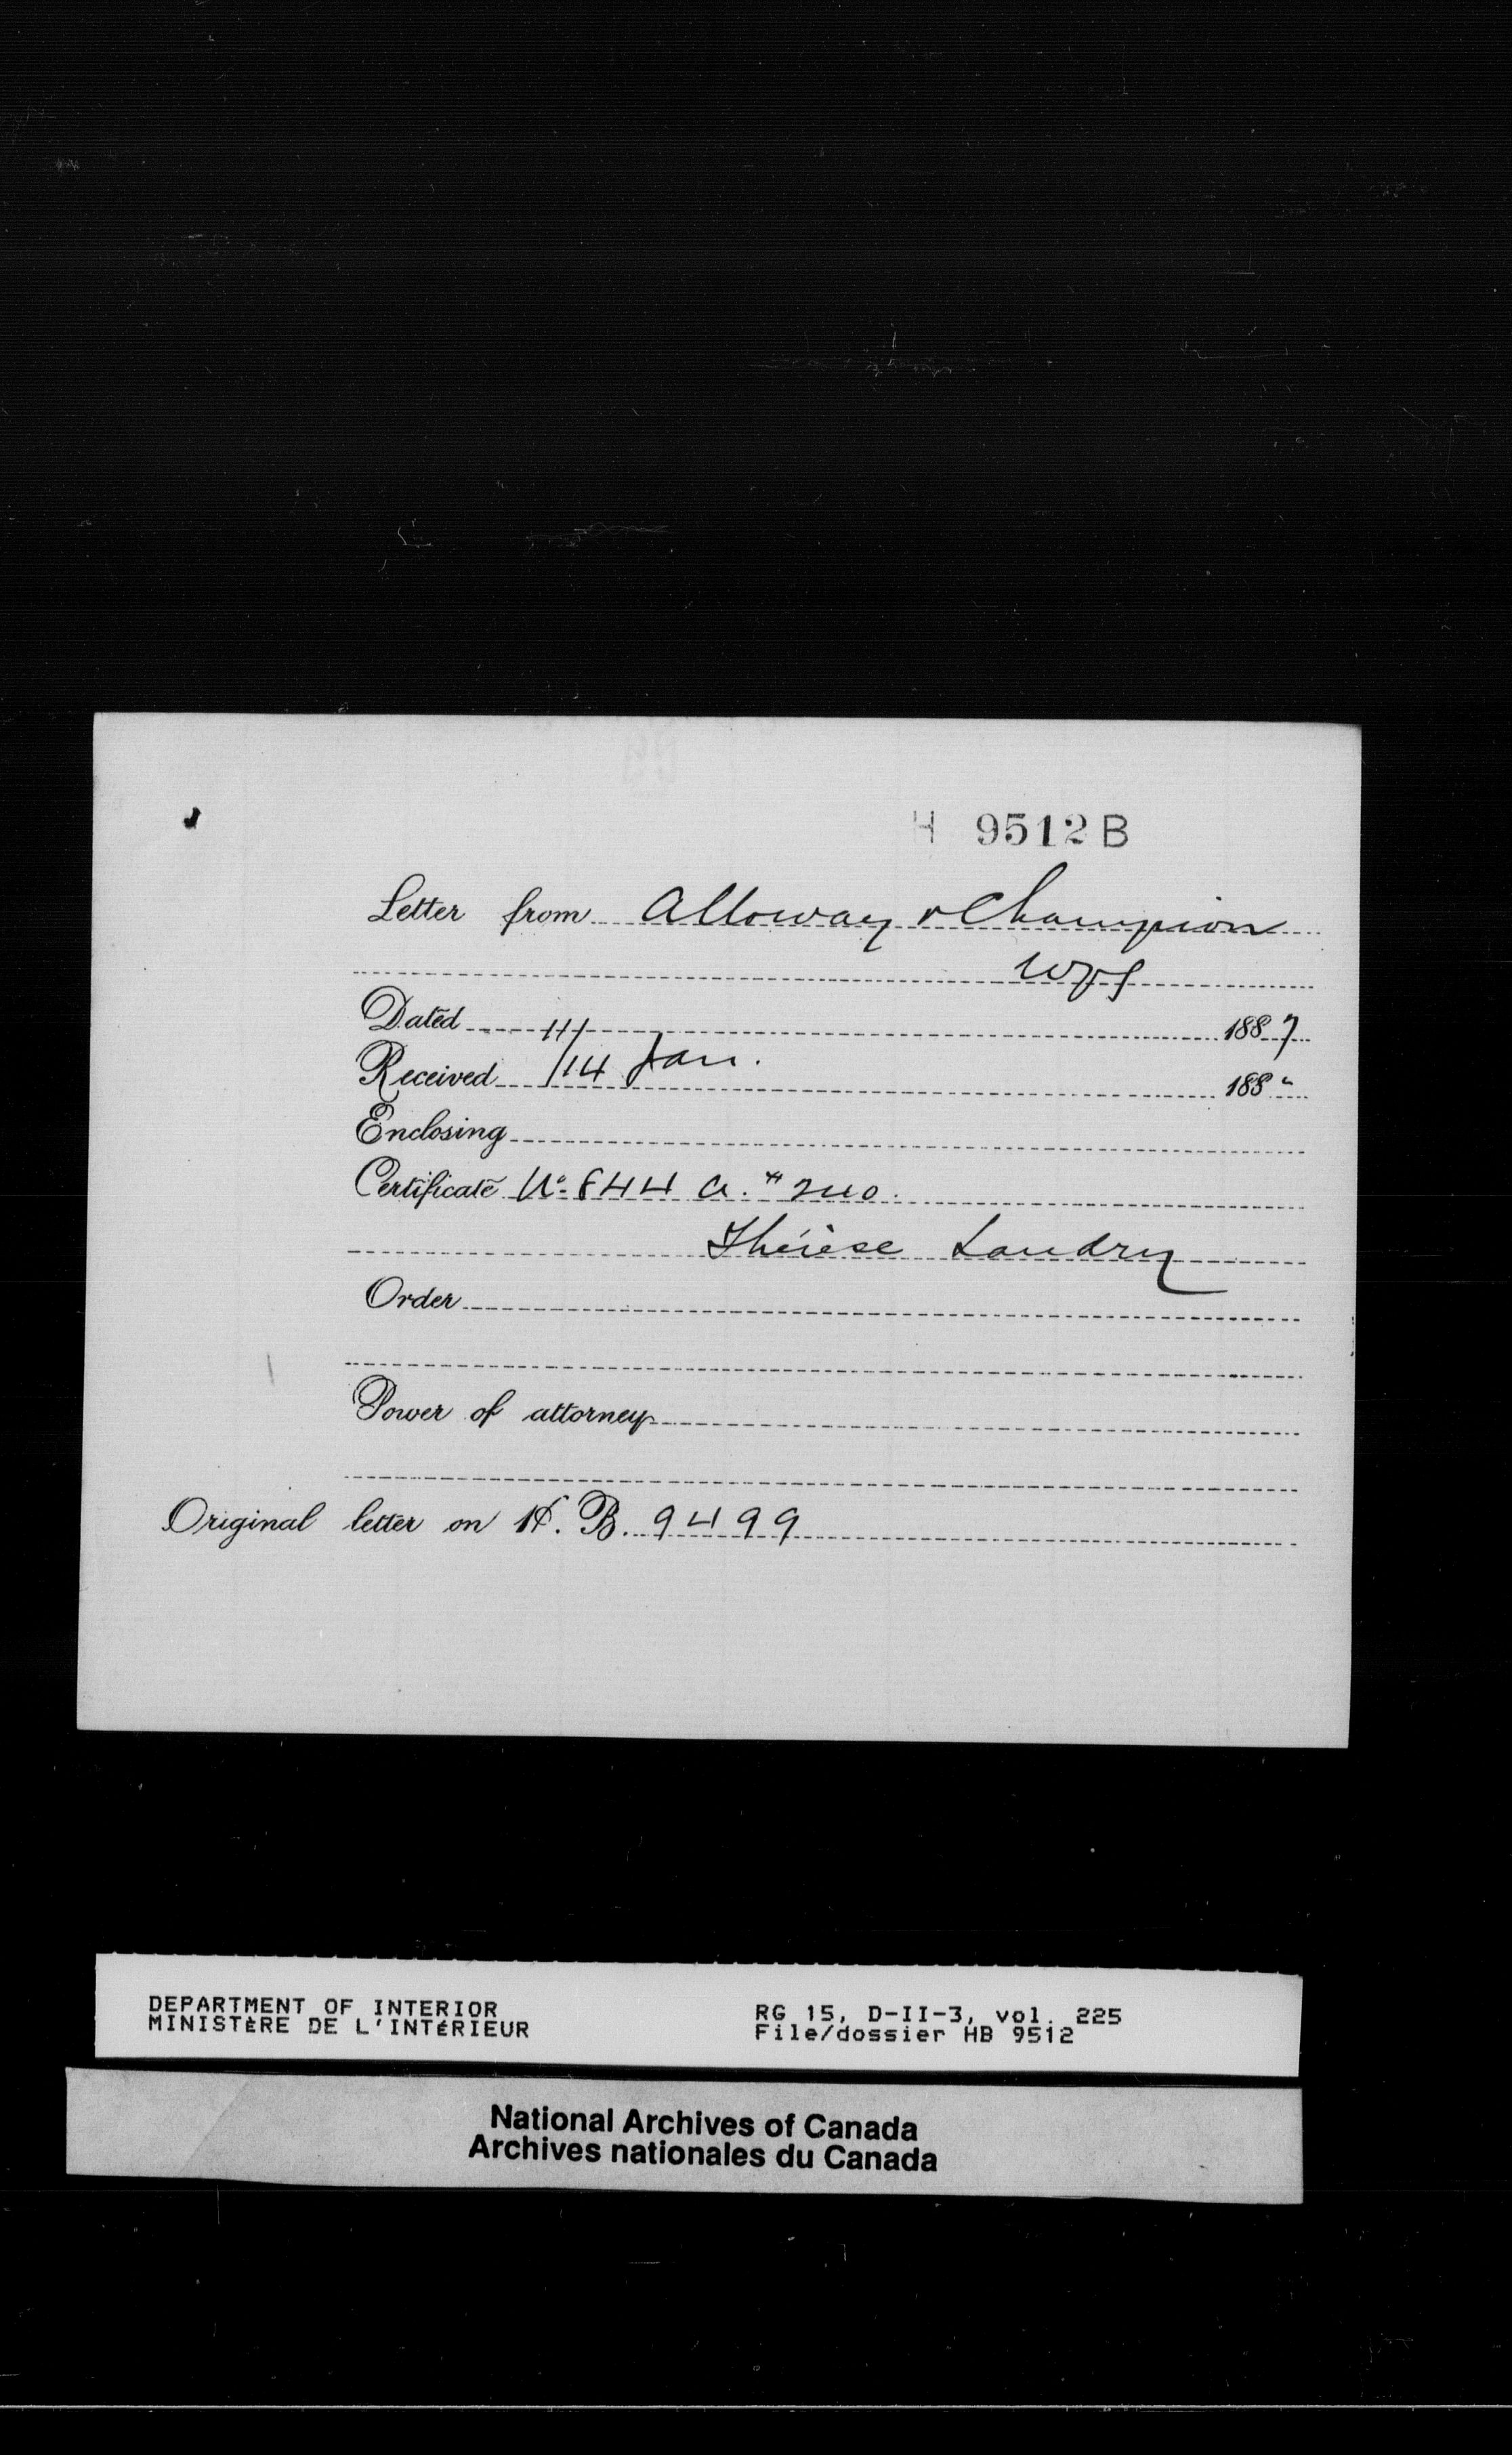 H 9512 B
Letter from Alloway & Champion
Wpg
Dated 11 1887
Received 14 Jan. 188"
Enclosing
Certificate No 844 A. $240.
Thérèse Landry
Order
Power of attorney
Original letter on H. B. 9499
DEPARTMENT OF INTERIOR
MINISTÈRE DE L'INTÉRIEUR
RG 15, D-II-3, vol. 225
File/dossier HB 9512
National Archives of Canada
Archives nationales du Canada